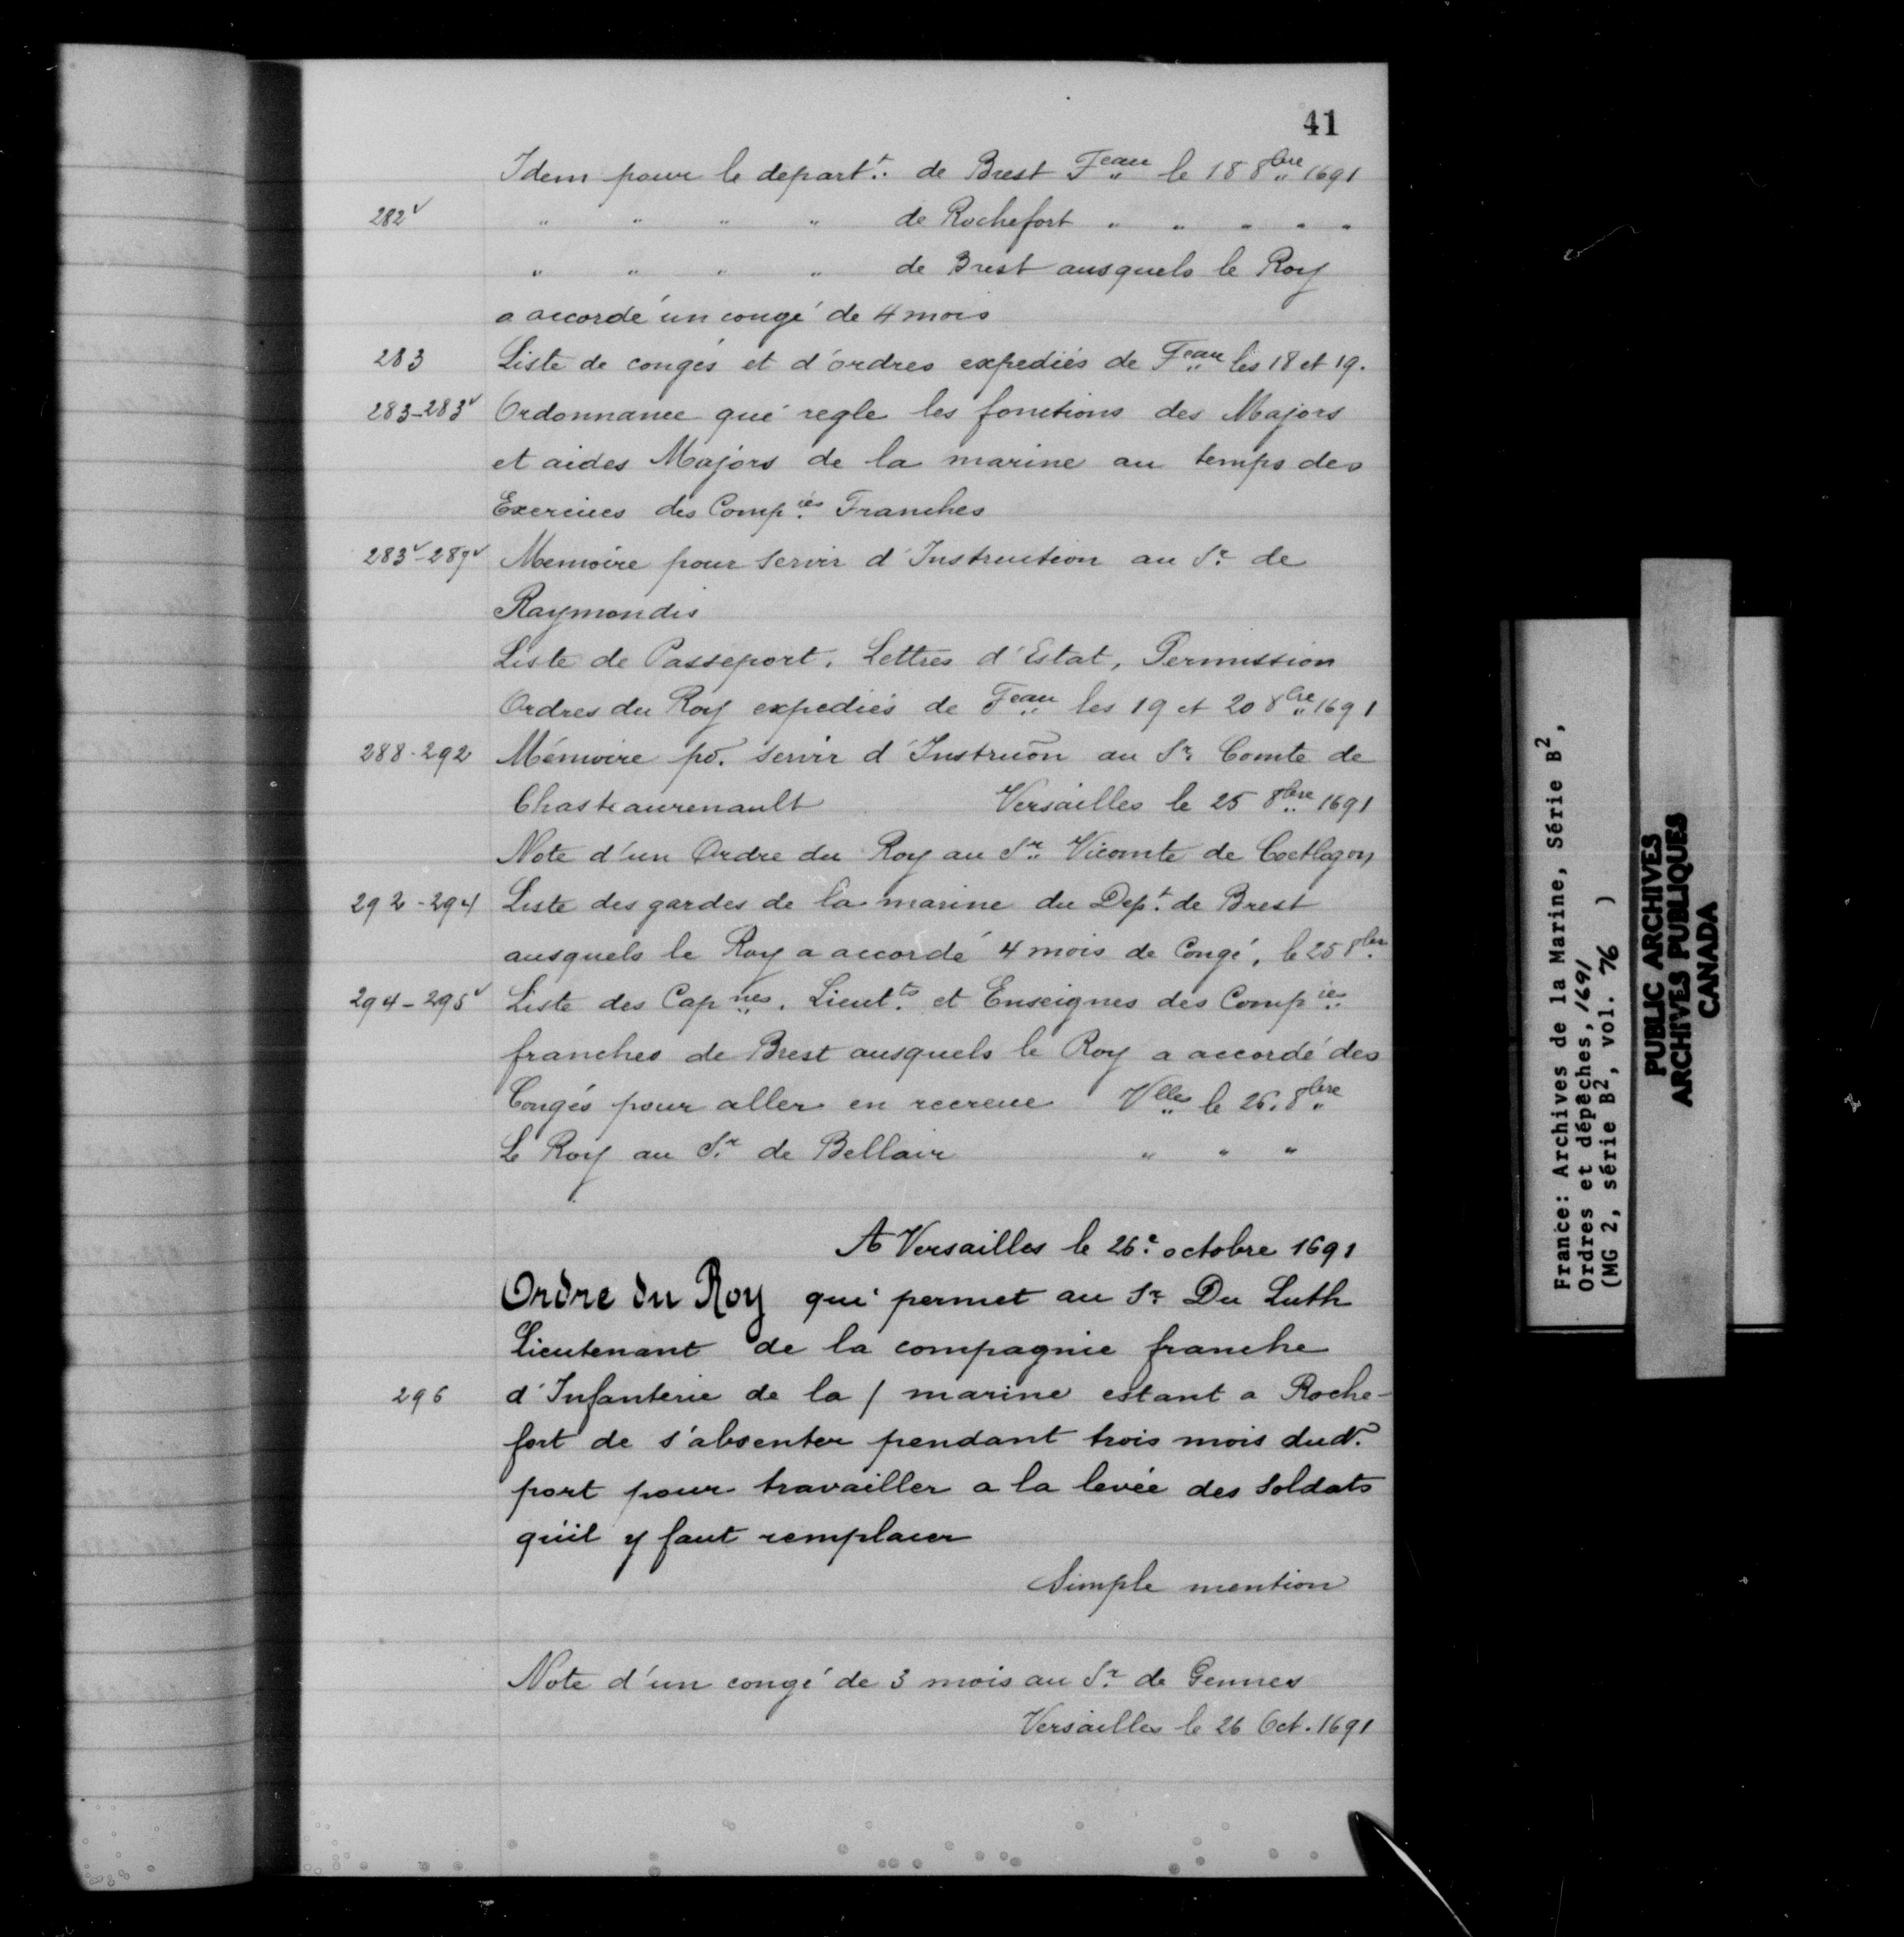 41
Idem pour le depart.t de Brest F.eau le 18 8.bre 1691
282v " " " " de Rochefort " " " " "
" " " " de Brest ausquels le Roy
a accordé un congé de 4 mois
283 Liste de congés et d'ordres expediés de F.eau les 18 et 19.
283-283v Ordonnance qui regle les fonctions des Majors
et aides Majors de la marine au temps des
Exercices des Comp.ies Franches
283v-287v Memoire pour servir d'Instruction au Sr. de
Raymondis
Liste de Passeport, Lettres d'Estat, Permission
Ordres du Roy expediés de F.eau les 19 et 20 8.bre 1691
288-292 Mémoire po. servir d'Instruõn au Sr. Comte de
Chasteaurenault Versailles le 25 8.bre 1691
Note d'un Ordre du Roy au Sr. Vicomte de Coetlogon
292-294 Liste des gardes de la marine du Dep.t de Brest
ausquels le Roy a accordé 4 mois de Congé, le 25 8.bre
294-295v Liste des Cap.nes, Lieut.ts et Enseignes des Comp.ies
franches de Brest ausquels le Roy a accordé des
Congés pour aller en recreue V.lles le 26. 8.bre
Le Roy au Sr. de Bellair " " "
A Versailles le 26.e octobre 1691
Ordre du Roy qui permet au Sr. Du Luth
Lieutenant de la compagnie franche
296 d'Infanterie de la / marine estant a Roche-
fort de s'absenter pendant trois mois dud.
port pour travailler a la levée des soldats
qu'il y faut remplacer
Simple mention
Note d'un congé de 3 mois au Sr. de Gennes
Versailles le 26 Oct. 1691
France: Archives de la Marine, Série B2,
Ordres et dépêches, 1691
(MG 2, série B2, vol. 76 )
PUBLIC ARCHIVES
ARCHIVES PUBLIQUES
CANADA